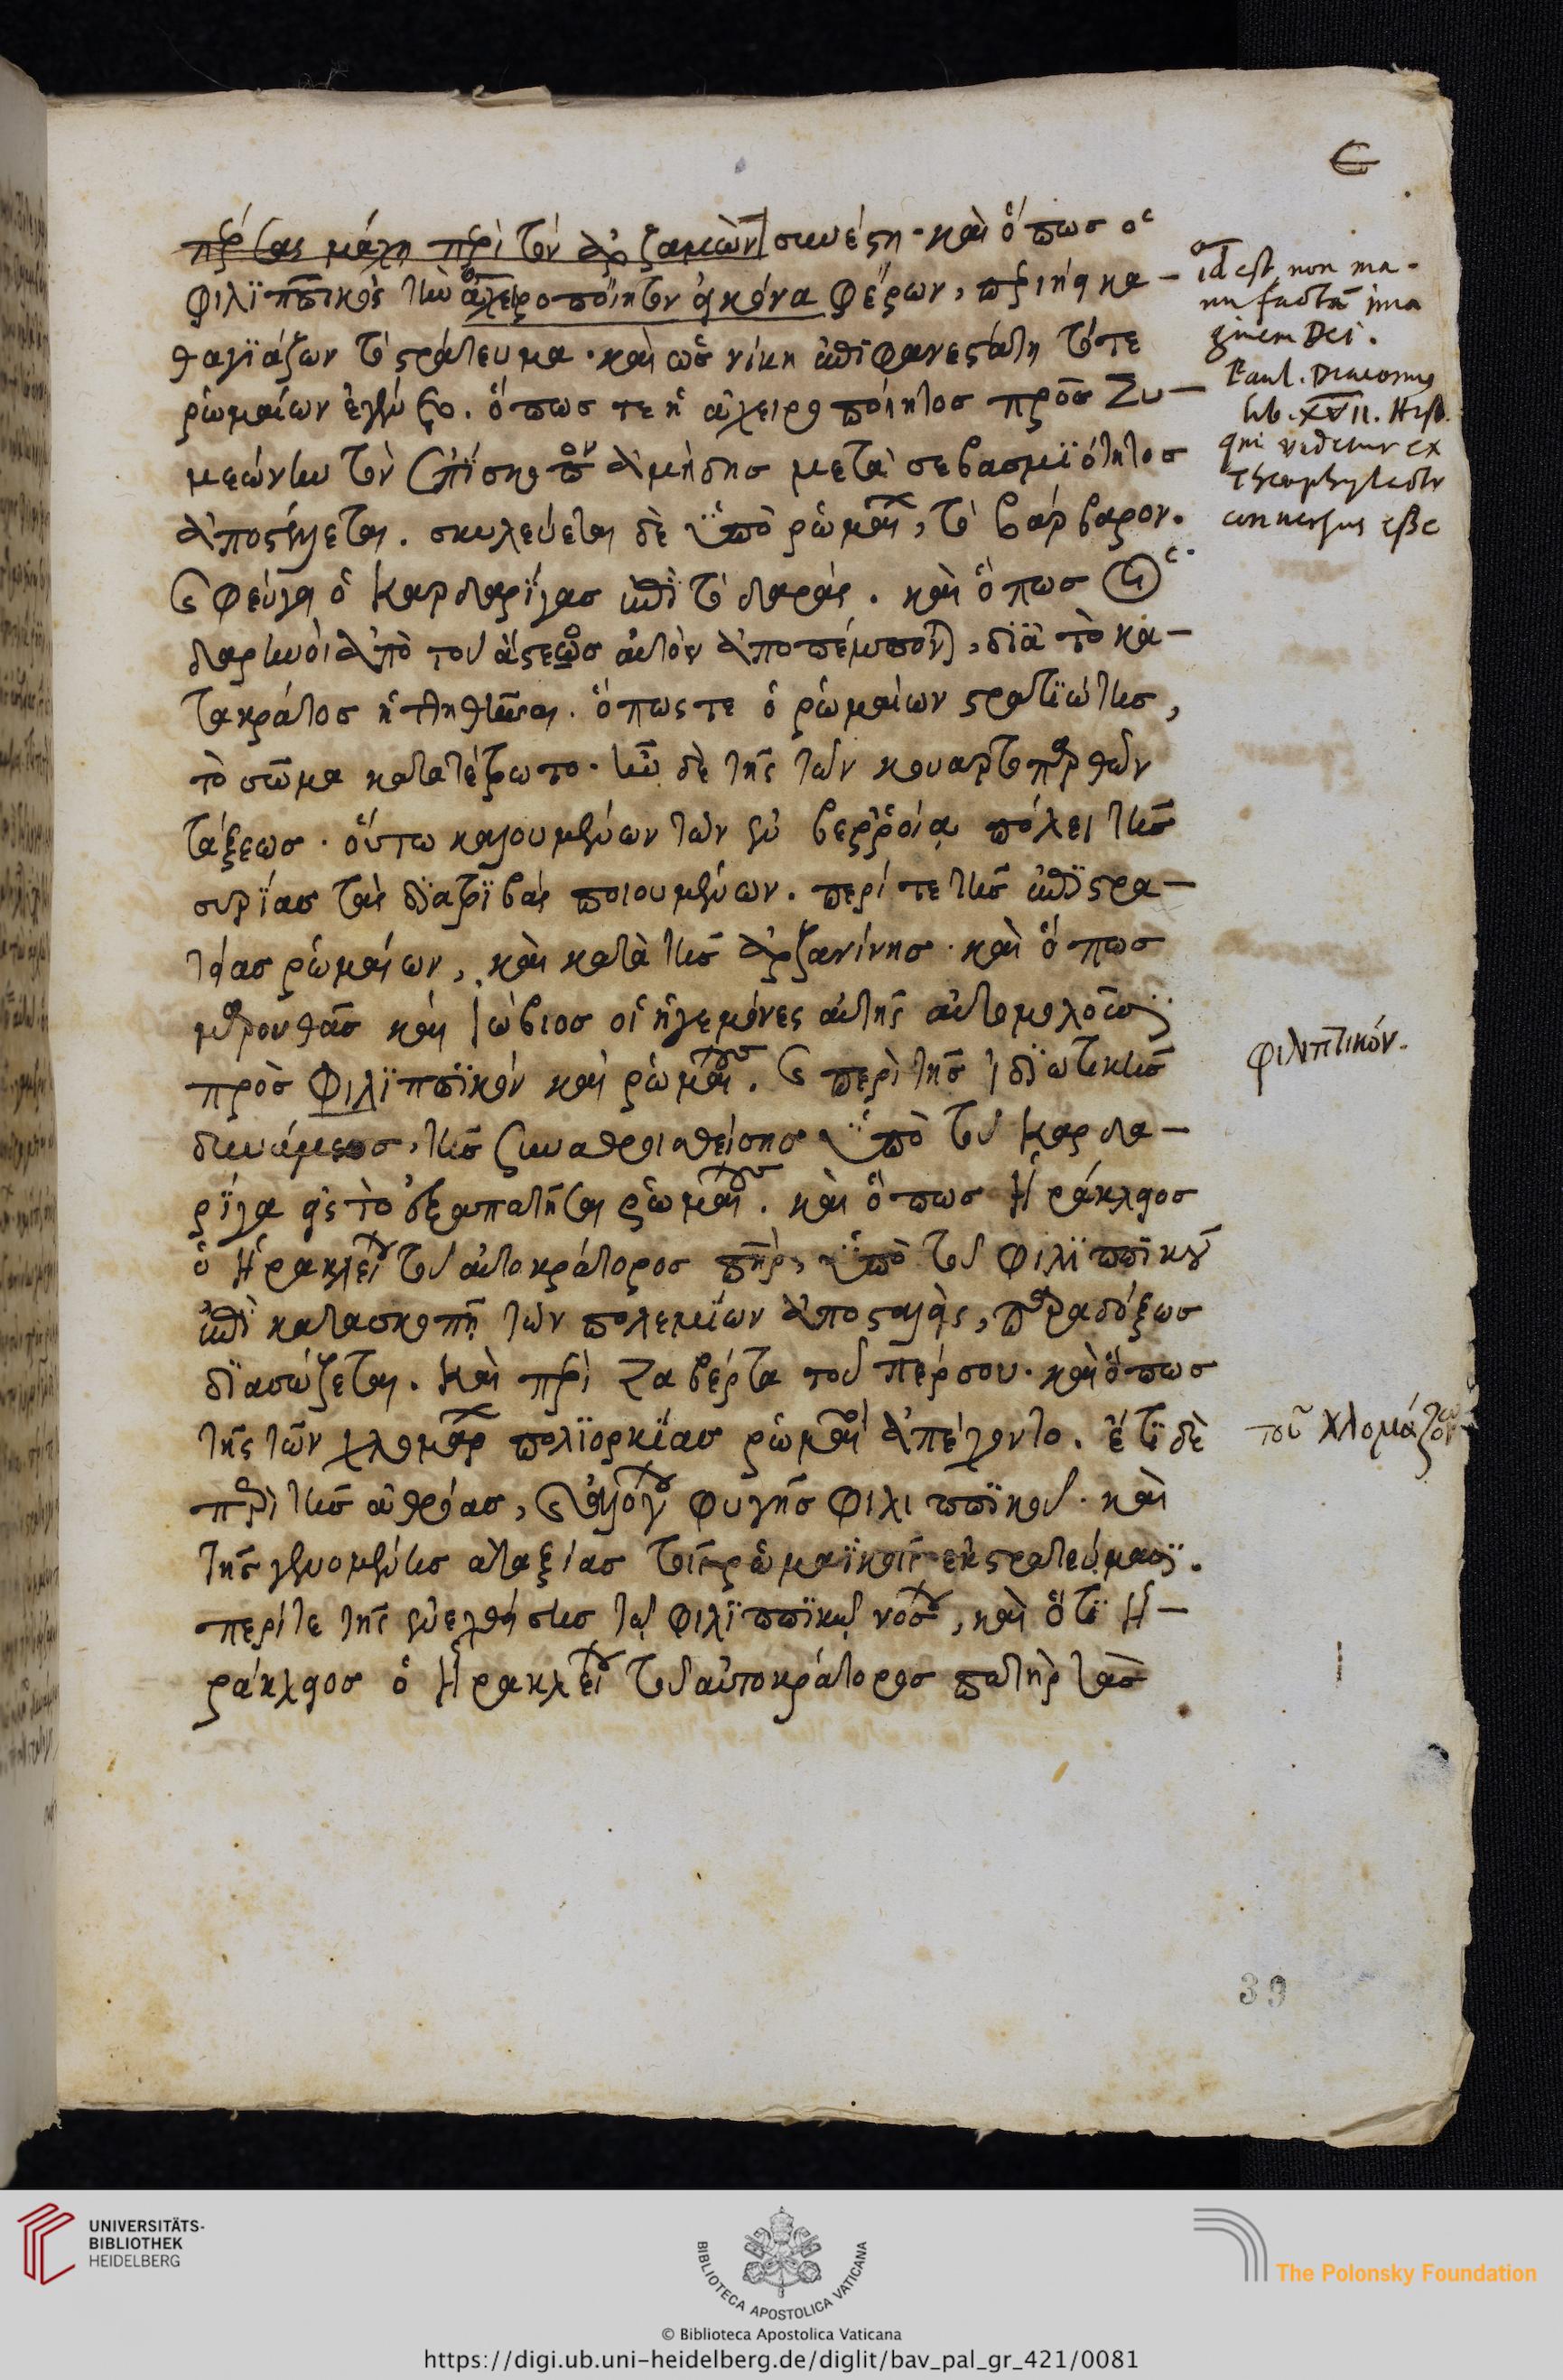 πέρσας μάχη περὶ τὸν ἀρζαμὼν συνέστη· καὶ ὅπως ὁ
φιλϊππικὸς τὴν ἀχειροποίητον εἰκόνα φέρων, περιήει κα-
θαγϊάζων τὸ στράτευμα· καὶ ὡς νίκη ἐπϊφανεστάτη τότε
ῥωμαίων ἐγένετο. ὅπως τε ἡ ἀχειροποίητος πρὸς Συ-
μεώνην τὸν ἐπίσκοπον ἀμήδης μετὰ σεβασμϊότητος
ἀποστέλλεται. σκυλεύεται δὲ ὑπὸ ῥωμαίων, τὸ βάρβαρον.
καὶ φεύγει ὁ καρδαρίγας ἐπὶ τὸ δαράς. καὶ ὅπως οἱ
δαρηνοὶ ἀπὸ τοῦ ἄστεως αὐτὸν ἀποπέμπουσι, διὰ τὸ κα-
τακράτος ἡττηθῆναι. ὅπως τε ὁ ῥωμαίων στρατϊώτης,
τὸ σῶμα κατατέτρωτο· ἦν δὲ τῆς τῶν κουαρτοπαρθῶν
τάξεως· οὕτω καλουμένων τῶν ἐν βερροίᾳ πόλει τῆς
συρίας τὰς διατριβὰς ποιουμένων. περί τε τῆς ἐπϊστρα-
τείας ῥωμαίων, καὶ κατὰ τῆς ἀρζανίνης· καὶ ὅπως
μαρουθᾶς καὶ ἰώβιος οἱ ἡγεμόνες αὐτῆς αὐτομολοῦσϊ
πρὸς φιλϊππϊκὸν καὶ ῥωμαίους. καὶ περὶ τῆς ἰδϊωτικῆς
δυνάμεως, τῆς συναθροισθείσης ὑπὸ τοῦ καρδα-
ρίγα εἰς τὸ ἐξαπατῆσαι ῥωμαίους. καὶ ὅπως Ἡράκλειος
ὁ Ἡρακλείου τοῦ αὐτοκράτορος πηρ, ὑπὸ τοῦ φιλϊππϊκοῦ
ἐπὶ κατασκοπῇ τῶν πολεμίων ἀποσταλεὶς, παραδόξως
δϊασώζεται. καὶ περὶ Ζαβέρτα τοῦ πέρσου· καὶ ὅπως
τῆς τῶν χλομάρων πολϊορκίας ῥωμαῖοι ἀπέχοντο. ἔτϊ δὲ
περὶ τῆς ἀθρόας, καὶ ἀλόγου φυγῆς φιλιππϊκοῦ· καὶ
τῆς γενομένης ἀταξίας τοῖς ῥωμαϊκοῖς ἐκστρατεύμασϊ.
περί τε τῆς ἐνελθούσης τῷ φιλϊππϊκῷ νόσου, καὶ ὅτϊ Ἡ-
ράκλειος ὁ Ἡρακλείου τοῦ αὐτοκράτορος πατὴρ τὰς
id est, non ma-
nu factā ima
ginem Dei.
Paul. Diaconus
lib. XVII. Hist.
qui videtur ex
Theophylacto
conversus esse
φιλιππικόν.
τοῦ χλομάρων
39
UNIVERSITÄTS-
BIBLIOTHEK
HEIDELBERG
BIBLIOTECA APOSTOLICA VATICANA
The Polonsky Foundation
© Biblioteca Apostolica Vaticana
https://digi.ub.uni-heidelberg.de/diglit/bav_pal_gr_421/0081